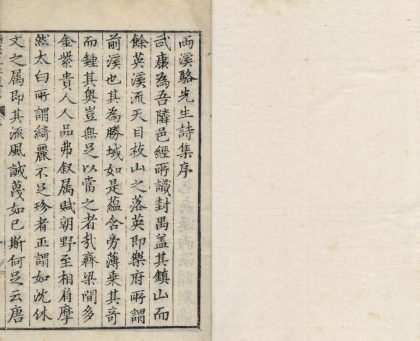 两溪駱先生詩集序
武康為吾隣邑經所識封禺盖其鎮山而
餘英溪流天目枝山之落英即樂府所謂
前溪也其為勝域如是蘊含旁薄乘其奇
而鍾其奥豈無足以當之者㦲齊梁間多
金紫貴人人品弗叙属賦朝野至相肩摩
然太白所謂綺麗不足珍者正謂如沈休
文之属即其流風誠蔑如已斯何足云唐